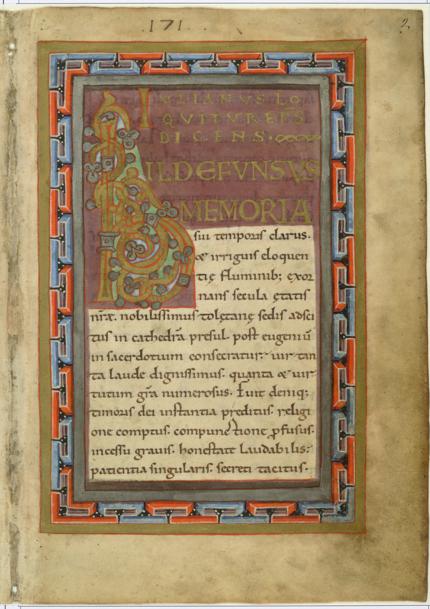 171
2.
IVLIANVS LO
QVITVR EPS
DICENS·
HILDEFVNSVS
MEMORIA
sui temporis clarus.
& irriguis eloquen
tię fluminib; exor
nans secula ętatis
nr̄ae. nobilissimus toletanę sedis adsci
tus in cathedrā presul. post eugeniū
in sacerdotium consecratur; uir tan
ta laude dignissimus. quanta & uir
tutum gr̄a numerosus. Fuit deniq;
timoris dei instantia preditus. religi
one comptus. compunctione ꝓfusus.
incessu grauis. honestate laudabilis;
patientia singularis. secreti tacitus.